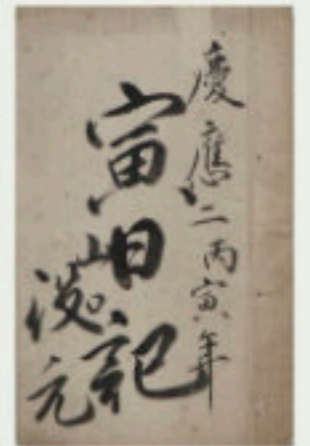 慶應二丙寅年
寅日記
元